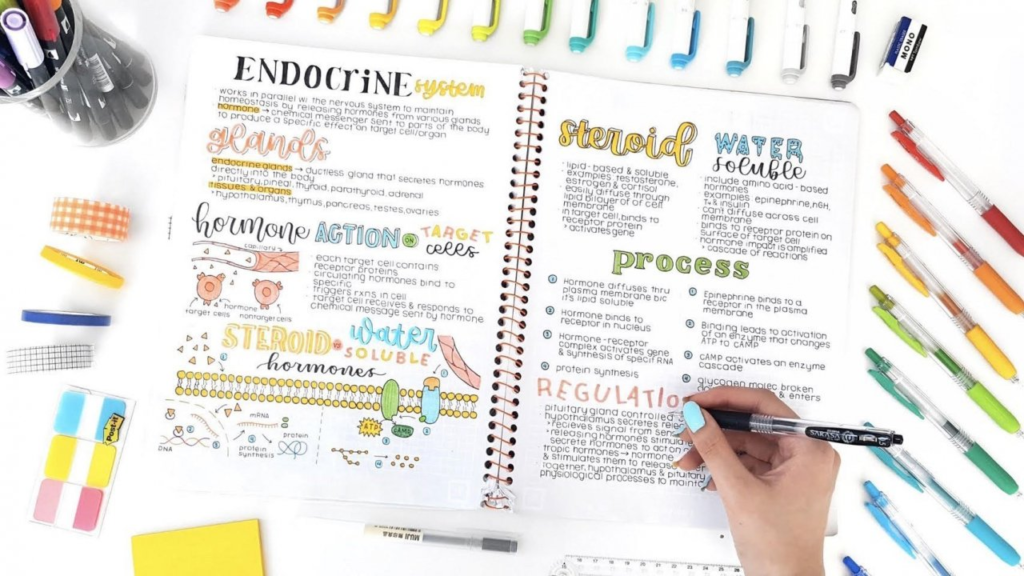 ENDOCRINE system
· works in parallel w/ the nervous system to maintain
homeostasis by releasing hormones from various glands
· hormone → chemical messenger sent to parts of the body
to produce a specific effect on target cell/organ
glands
endocrine glands → ductless gland that secretes hormones
directly into the body
· pituitary, pineal, thyroid, parathyroid, adrenal
tissues & organs
· hypothalamus, thymus, pancreas, testes, ovaries
hormone ACTION ON TARGET cells
capillary
· each target cell contains
receptor proteins
· circulating hormones bind to
specific
· triggers rxns in cell
· target cell receives & responds to
chemical message sent by hormone
hormone
target cells
nontarget cells
STEROID vs water SOLUBLE
hormones
ATP
cAMP
mRNA
DNA
protein synthesis
protein
steroid
· lipid-based & soluble
· examples: testosterone,
estrogen & cortisol
· easily diffuse through
lipid bilayer of cell
membrane
· in target cell, binds to
receptor protein
· activates gene
WATER soluble
· include amino acid-based
hormones
· examples: epinephrine, hGH,
T4 & insulin
· can't diffuse across cell
membrane
· binds to receptor protein on
surface of target cell
· hormone impact is amplified
· cascade of reactions
process
1 Hormone diffuses thru
plasma membrane b/c
it's lipid soluble
2 Hormone binds to
receptor in nucleus
3 Hormone-receptor
complex activates gene
& synthesis of specif RNA
4 protein synthesis
1 Epinephrine binds to a
receptor in the plasma
membrane
2 Binding leads to activation
of an enzyme that changes
ATP to cAMP
3 cAMP activates an enzyme
cascade
4 glycogen molec broken
& enters
REGULATIO
pituitary gland controlled
hypothalamus secretes
· recieves signal from
· releasing hormones
secrete hormones to
tropic hormones → hormone
& stimulates them to
together, hypothalamus & pituitary
physiological processes to
MONO
Post-it
MUJI